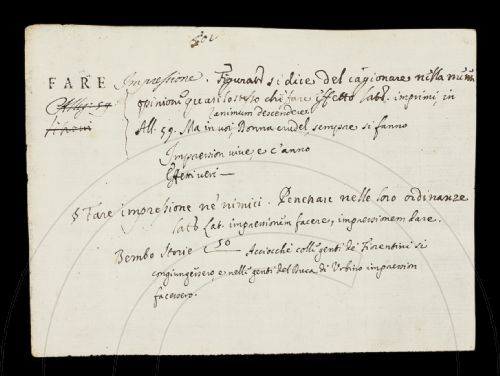 FARE Impressione. Figurat. si dice del cagionare nella mente
Alleg: 59 opinioni quasi lo stesso che fare Effetto Lat. imprimi, in
animum descendere
All. 59. Ma in voi Donna crudel, sempre si fanno
Impression vive, e c'anno
Effetti veri —
§ Fare impressione ne' nimici. Penetrare nelle loro ordinanze
Lat. impressionem facere, impressionem dare.
Bembo Storie 50 Acciocchè colle genti de' Fiorentini si
congiungessero e nelle genti del Duca di Urbino impression
facessero.